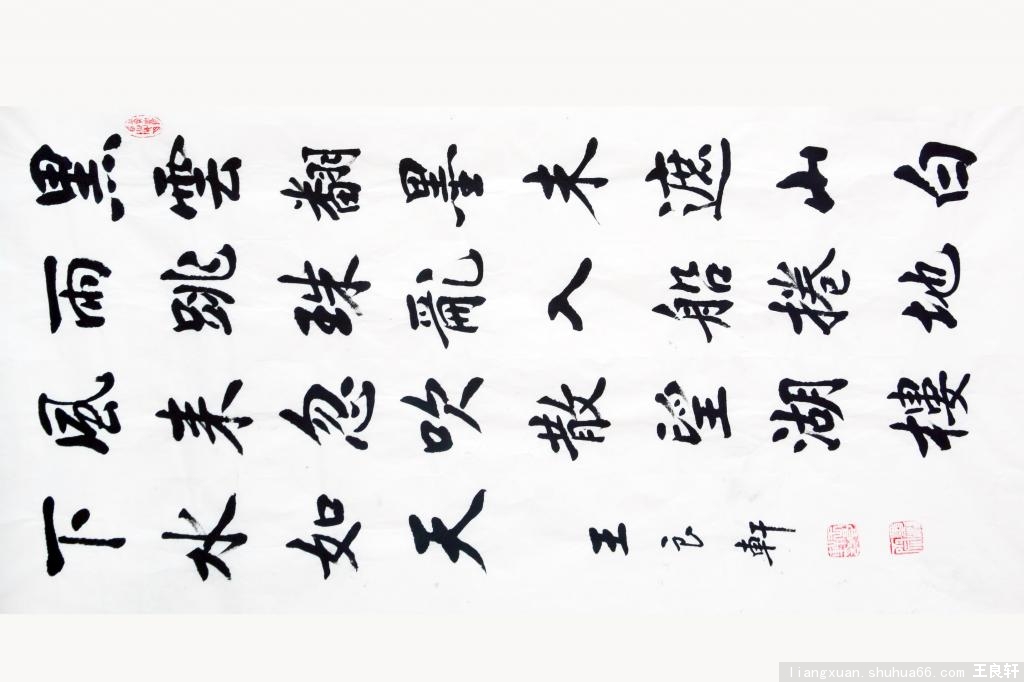 黑雲翻墨未遮山白
雨跳珠亂入船捲地
風来忽吹散望湖樓
下水如天
王良軒
liangxuan.shuhua66.com 王良轩